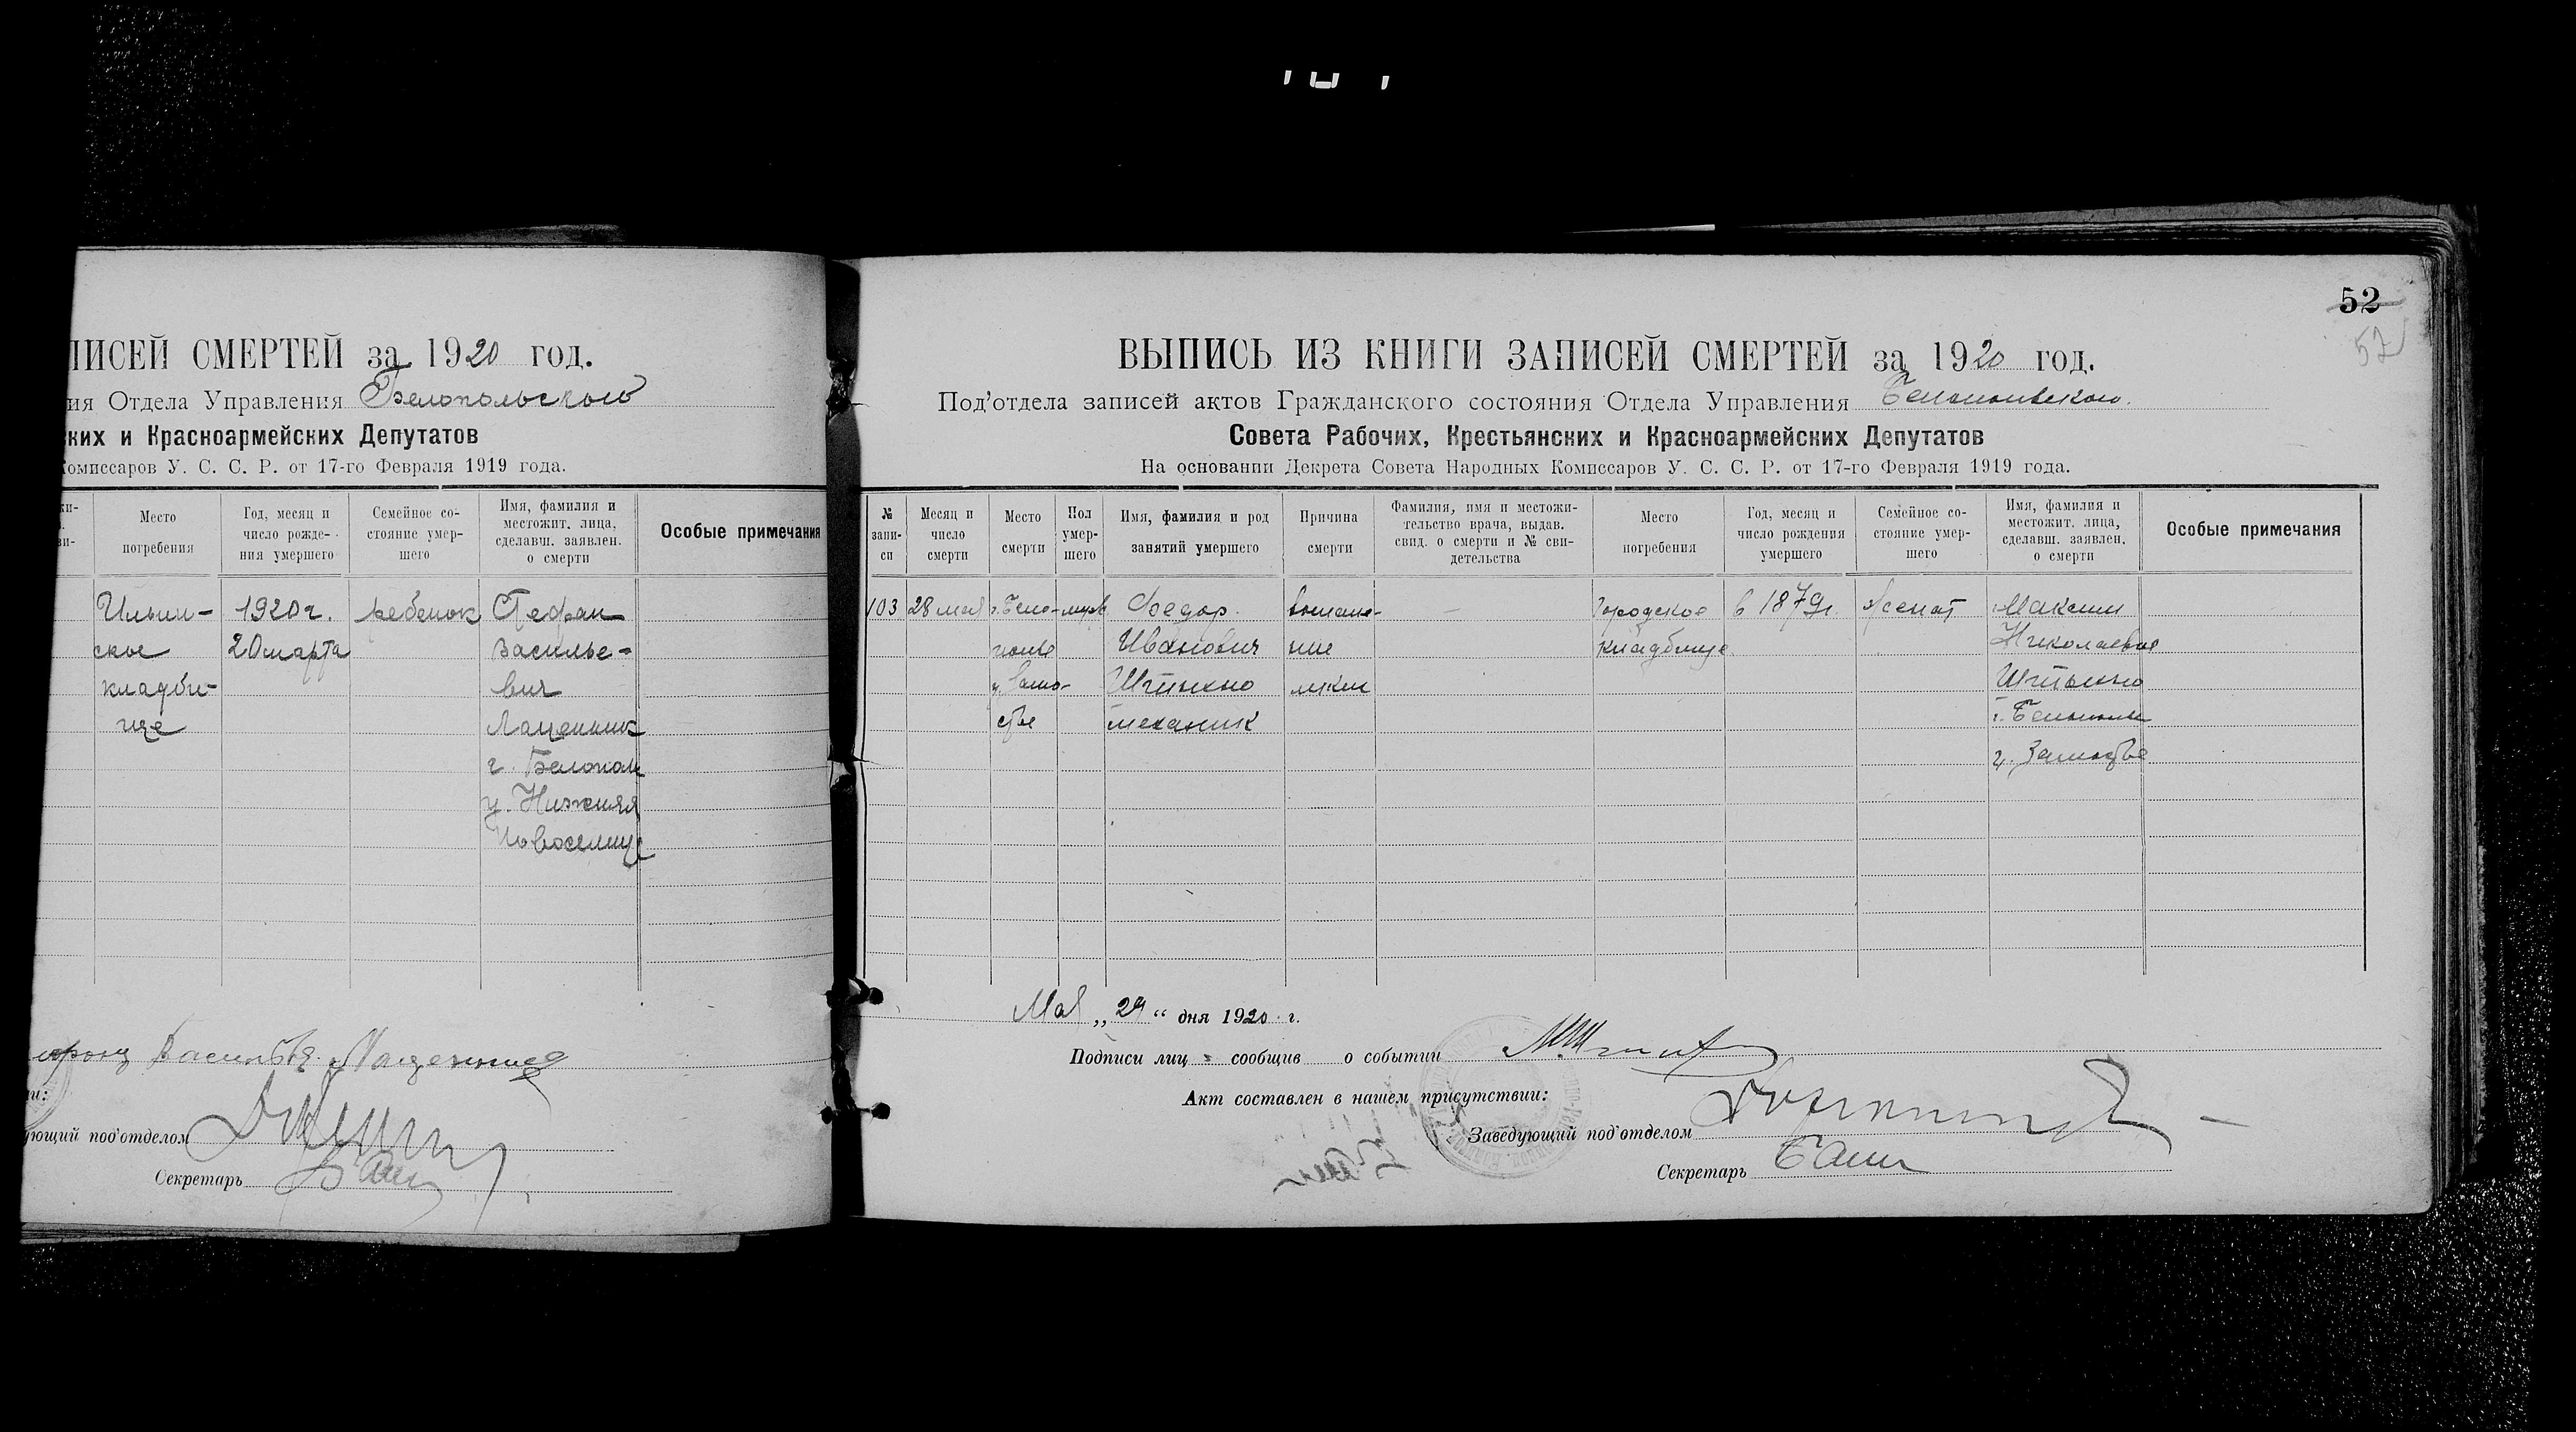 ПИСЕЙ СМЕРТЕЙ за 1920 год.
ия Отдела Управления Белопольского
ких и Красноармейских Депутатов
Комиссаров У. С. С. Р. от 17-го Февраля 1919 года.
Место погребения
Год, месяц и число рожде- ния умершего
Семейное со- стояние умер- шего
Имя, фамилия и местожит. лица, сделавш. заявлен. о смерти
Особые примечания
Ильин- 1920 г. ребенок Стефан
ское 20 марта Василье-
кладби- вич
ще
г. Белополь
у. Нижняя
Новоселица
ующий под'отделом
Секретарь
52
52
ВЫПИСЬ ИЗ КНИГИ ЗАПИСЕЙ СМЕРТЕЙ за 1920 год.
Под'отдела записей актов Гражданского состояния Отдела Управления Белопольского.
Совета Рабочих, Крестьянских и Красноармейских Депутатов
На основании Декрета Совета Народных Комиссаров У. С. С. Р. от 17-го Февраля 1919 года.
№ запи- си
Месяц и число смерти
Место смерти
Пол умер- шего
Имя, фамилия и род занятий умершего
Причина смерти
Фамилия, имя и местожи- тельство врача, выдав. свид. о смерти и № сви- детельства
Место погребения
Год, месяц и число рождения умершего
Семейное со- стояние умер- шего
Имя, фамилия и местожит. лица, сделавш. заявлен. о смерти
Особые примечания
103 28 мая г. Бело- муж Федор воспале- — Городское в 1879 г. женат Максим
полье Иванович ние кладбище Николаевич
у. Замо- легких
стье механик г. Белополье
у. Замостье
Мая „29“ дня 1920 г.
Подписи лиц сообщив о событии
Акт составлен в нашем присутствии:
Заведующий под'отделом
Секретарь